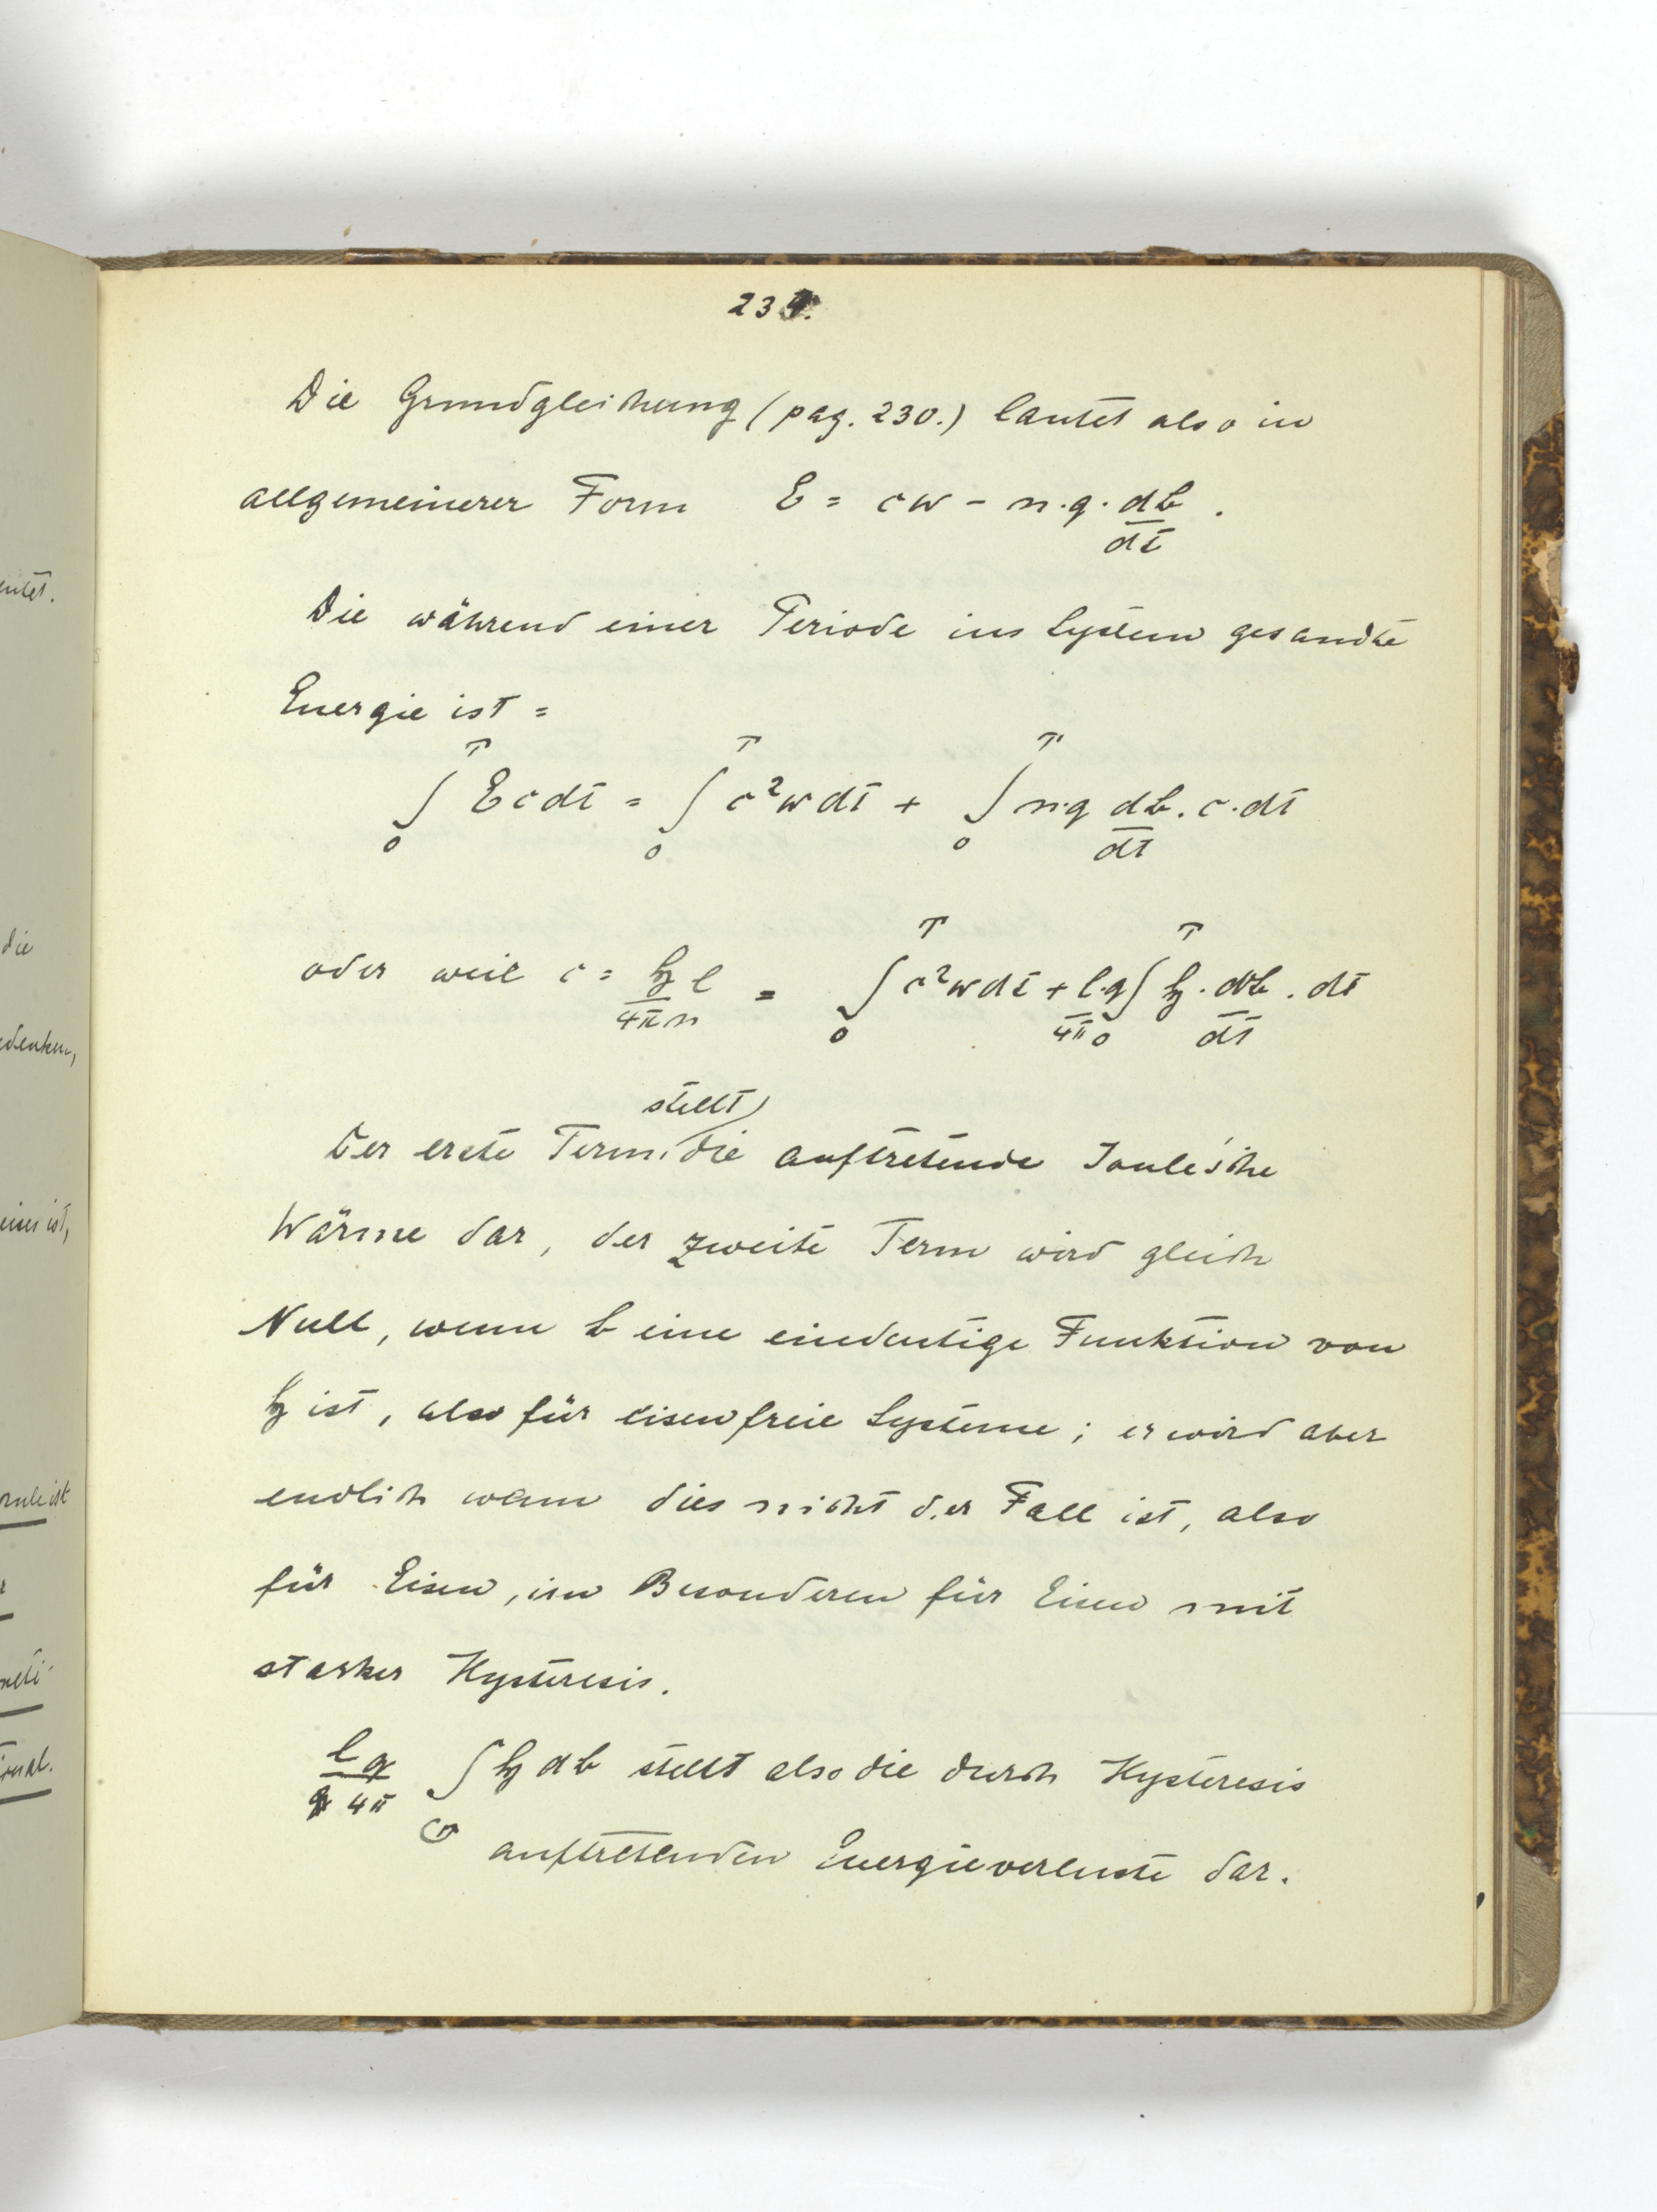 234.
Die Grundgleichung (pag. 230.) lautet also in
allgemeinerer Form E = cw - n.q. db/dt .
Die während einer Periode ins System gesandte
Energie ist =
∫₀ᵀ E c dt = ∫₀ᵀ c²w dt + ∫₀ᵀ n.q db/dt . c . dt
oder weil c = h l / 4πn = ∫₀ᵀ c²w dt + l.q/4π ∫₀ᵀ h . db/dt . dt
stellt
Der erste Term die auftretende Joule'sche
Wärme dar, der zweite Term wird gleich
Null, wenn b eine eindeutige Funktion von
h ist, also für eisenfreie Systeme; er wird aber
endlich wenn dies nicht der Fall ist, also
für Eisen, im Besonderen für Eisen mit
starker Hysteresis.
l q / 4π ∫ h db stellt also die durch Hysteresis
auftretenden Energieverluste dar.
die
edenken,